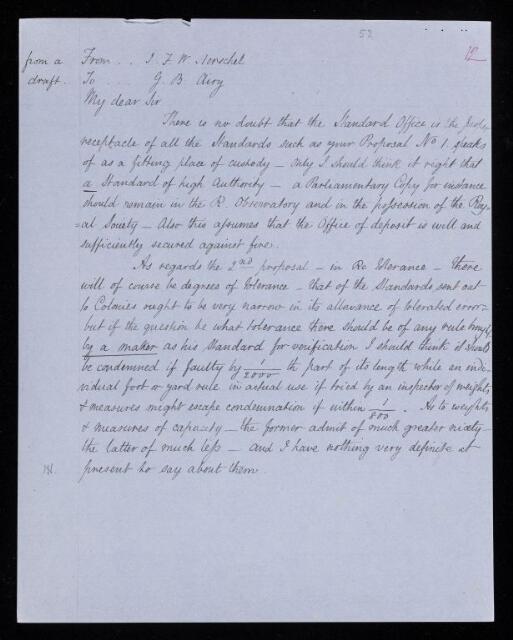 52
12
from a From . . J. F. W. Herschel
draft. To . . . . G. B. Airy
My dear Sir
There is no doubt that the Standard Office is the
receptacle of all the Standards such as your Proposal No 1. speaks
of as a fitting place of custody – only I should think it right that
a Standard of high Authority – a Parliamentary Copy for instance
should remain in the R. Observatory and in the possession of the Roy-
=al Society – Also this assumes that the Office of deposit is well and
sufficiently secured against fire.
As regards the 2nd proposal – in Re tolerance – there
will of course be degrees of tolerance – that of the Standards sent out
to Colonies ought to be very narrow in its allowance of tolerated error –
but if the question be what tolerance there should be of any rule
by a maker as his Standard for verification I should think it should
be condemned if faulty by 1/2000 th part of its length while an indi-
vidual foot or yard rule in actual use if tried by an inspector of weights
& measures might escape condemnation if within 1/800 . As to weights
& measures of capacity – the former admit of much greater nicety –
the latter of much less – and I have nothing very definite at
present to say about them.